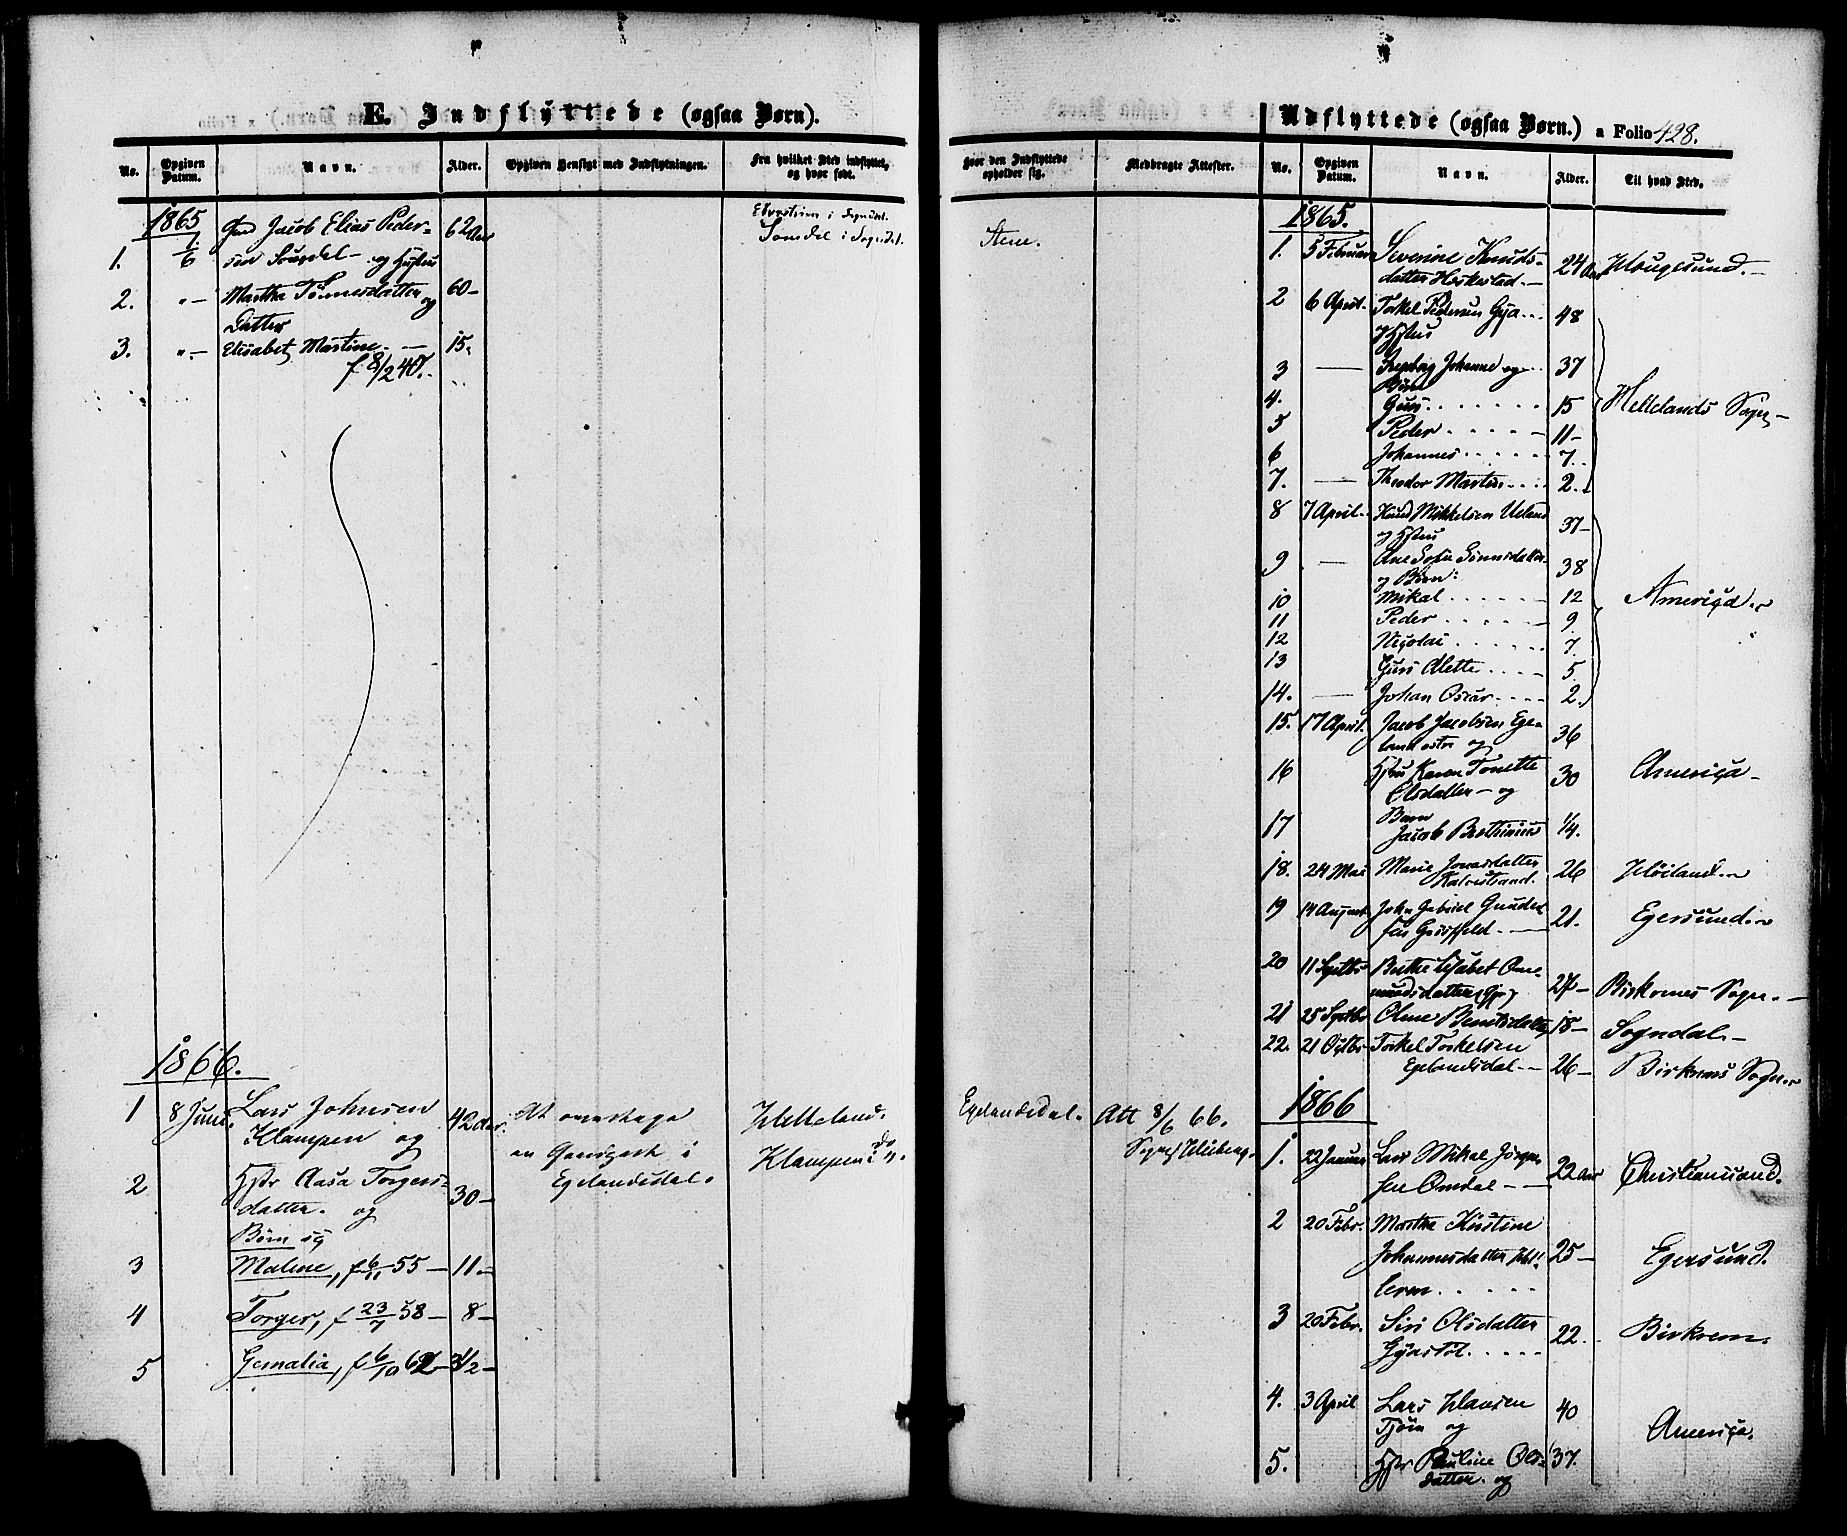 E. Indflyttede (ogsaa Børn).
No.
Opgiven Datum.
Navn.
Alder.
Opgiven Hensigt med Indflytningen.
Fra hvilket Sted indflyttet, og hvor født.
1865
1. 1/6 Jacob Elias Peder-
62 Aar
sen Sogndal - og Hustru
i Sogndal.
i Sogndal.
2. "- Martha Tønnesdatter og 60-
Datter
3. "- Elisabet Martine. - 15.
f. 8/2 40.
1866.
1 8 Juni. Lars Johnsen 42 Aar. At overtage Helleland.
Klampen og en Gaardpart i Klampen i do
2 Hstr Aasa Torgers- 30- Egelandsdal.
datter. og
Børn
3 Malene, f 6/11 55 - 11.-
4 Torger, f 23/7 58 - 8-
5 Gemalia, f 6/10 62 - 3 1/2 -
Udflyttede (ogsaa Børn.) a Folio 428.
Hvor den Indflyttede opholder sig.
Medbragte Attester.
No.
Opgiven Datum.
Navn.
Alder.
Til hvad Sted.
Stene.
Egelandsdal. Att 8/6 66.
1865.
1. 5 Februar Severine Knuds-
datter Heskestad. - 24 Aar Hougesund. -
2 6 April. Torkel Pedersen Gya... 48
og Hstru
3 - Ingeborg Johanne og 37
Børn
4. Guri........ 15 Hellelands Sogn -
5 Peder..... - 11-
6 Johannes..... 7..
7. - Theodor Martin.... 2.
8 7 April.. Knud Mikkelsen Ueland 37-
og Hstru
9 - Ane Sofie Simonsdatter 38
og Børn:
10 Mikal....... 12 Ameriça.
11 Peder...... 9
12 Niçolai..... 7.
13 Guri Alette.... 5.
14. - Johan Oscar.... 2.
15. 17 April. Jacob Jacobsen Ege-
land østre og 36
16 Hstru Karen Tonette 30 Ameriça -
Olsdatter - og
17 Barn
Jacob Berthinius 1/4.
18. 24 Mai Marie Jonasdatter 26 Høiland.
Kalvstrand.
19 14 August John Gabriel Gunder- 21. Egersund.
20 11 Septbr Berthe Lisabet Om-
mundsdatter 27- Birkrems Sogn. -
21 25 Septbr Oline Berntsdatter 18- Sogndal -
22. 21 Octbr Torkel Torkelsen
Egelandsdal - 26- Birkrems Sogn
1866
1. 22 Januar Lars Mikal Jørgen-
sen Omdal - - 22 Aar Christiansand.
2 20 Febr. Martha Kirstine
Johannesdatter Hel- 25- Egersund.
leren.....
3 20 Febr. Siri Olsdatter 22. Birkrem.
Gyastøl.....
4. 3 April Lars Hansen 40
Tjørn og Ameriça.
5. Hstr Pauline Ols- 37.
datter. og